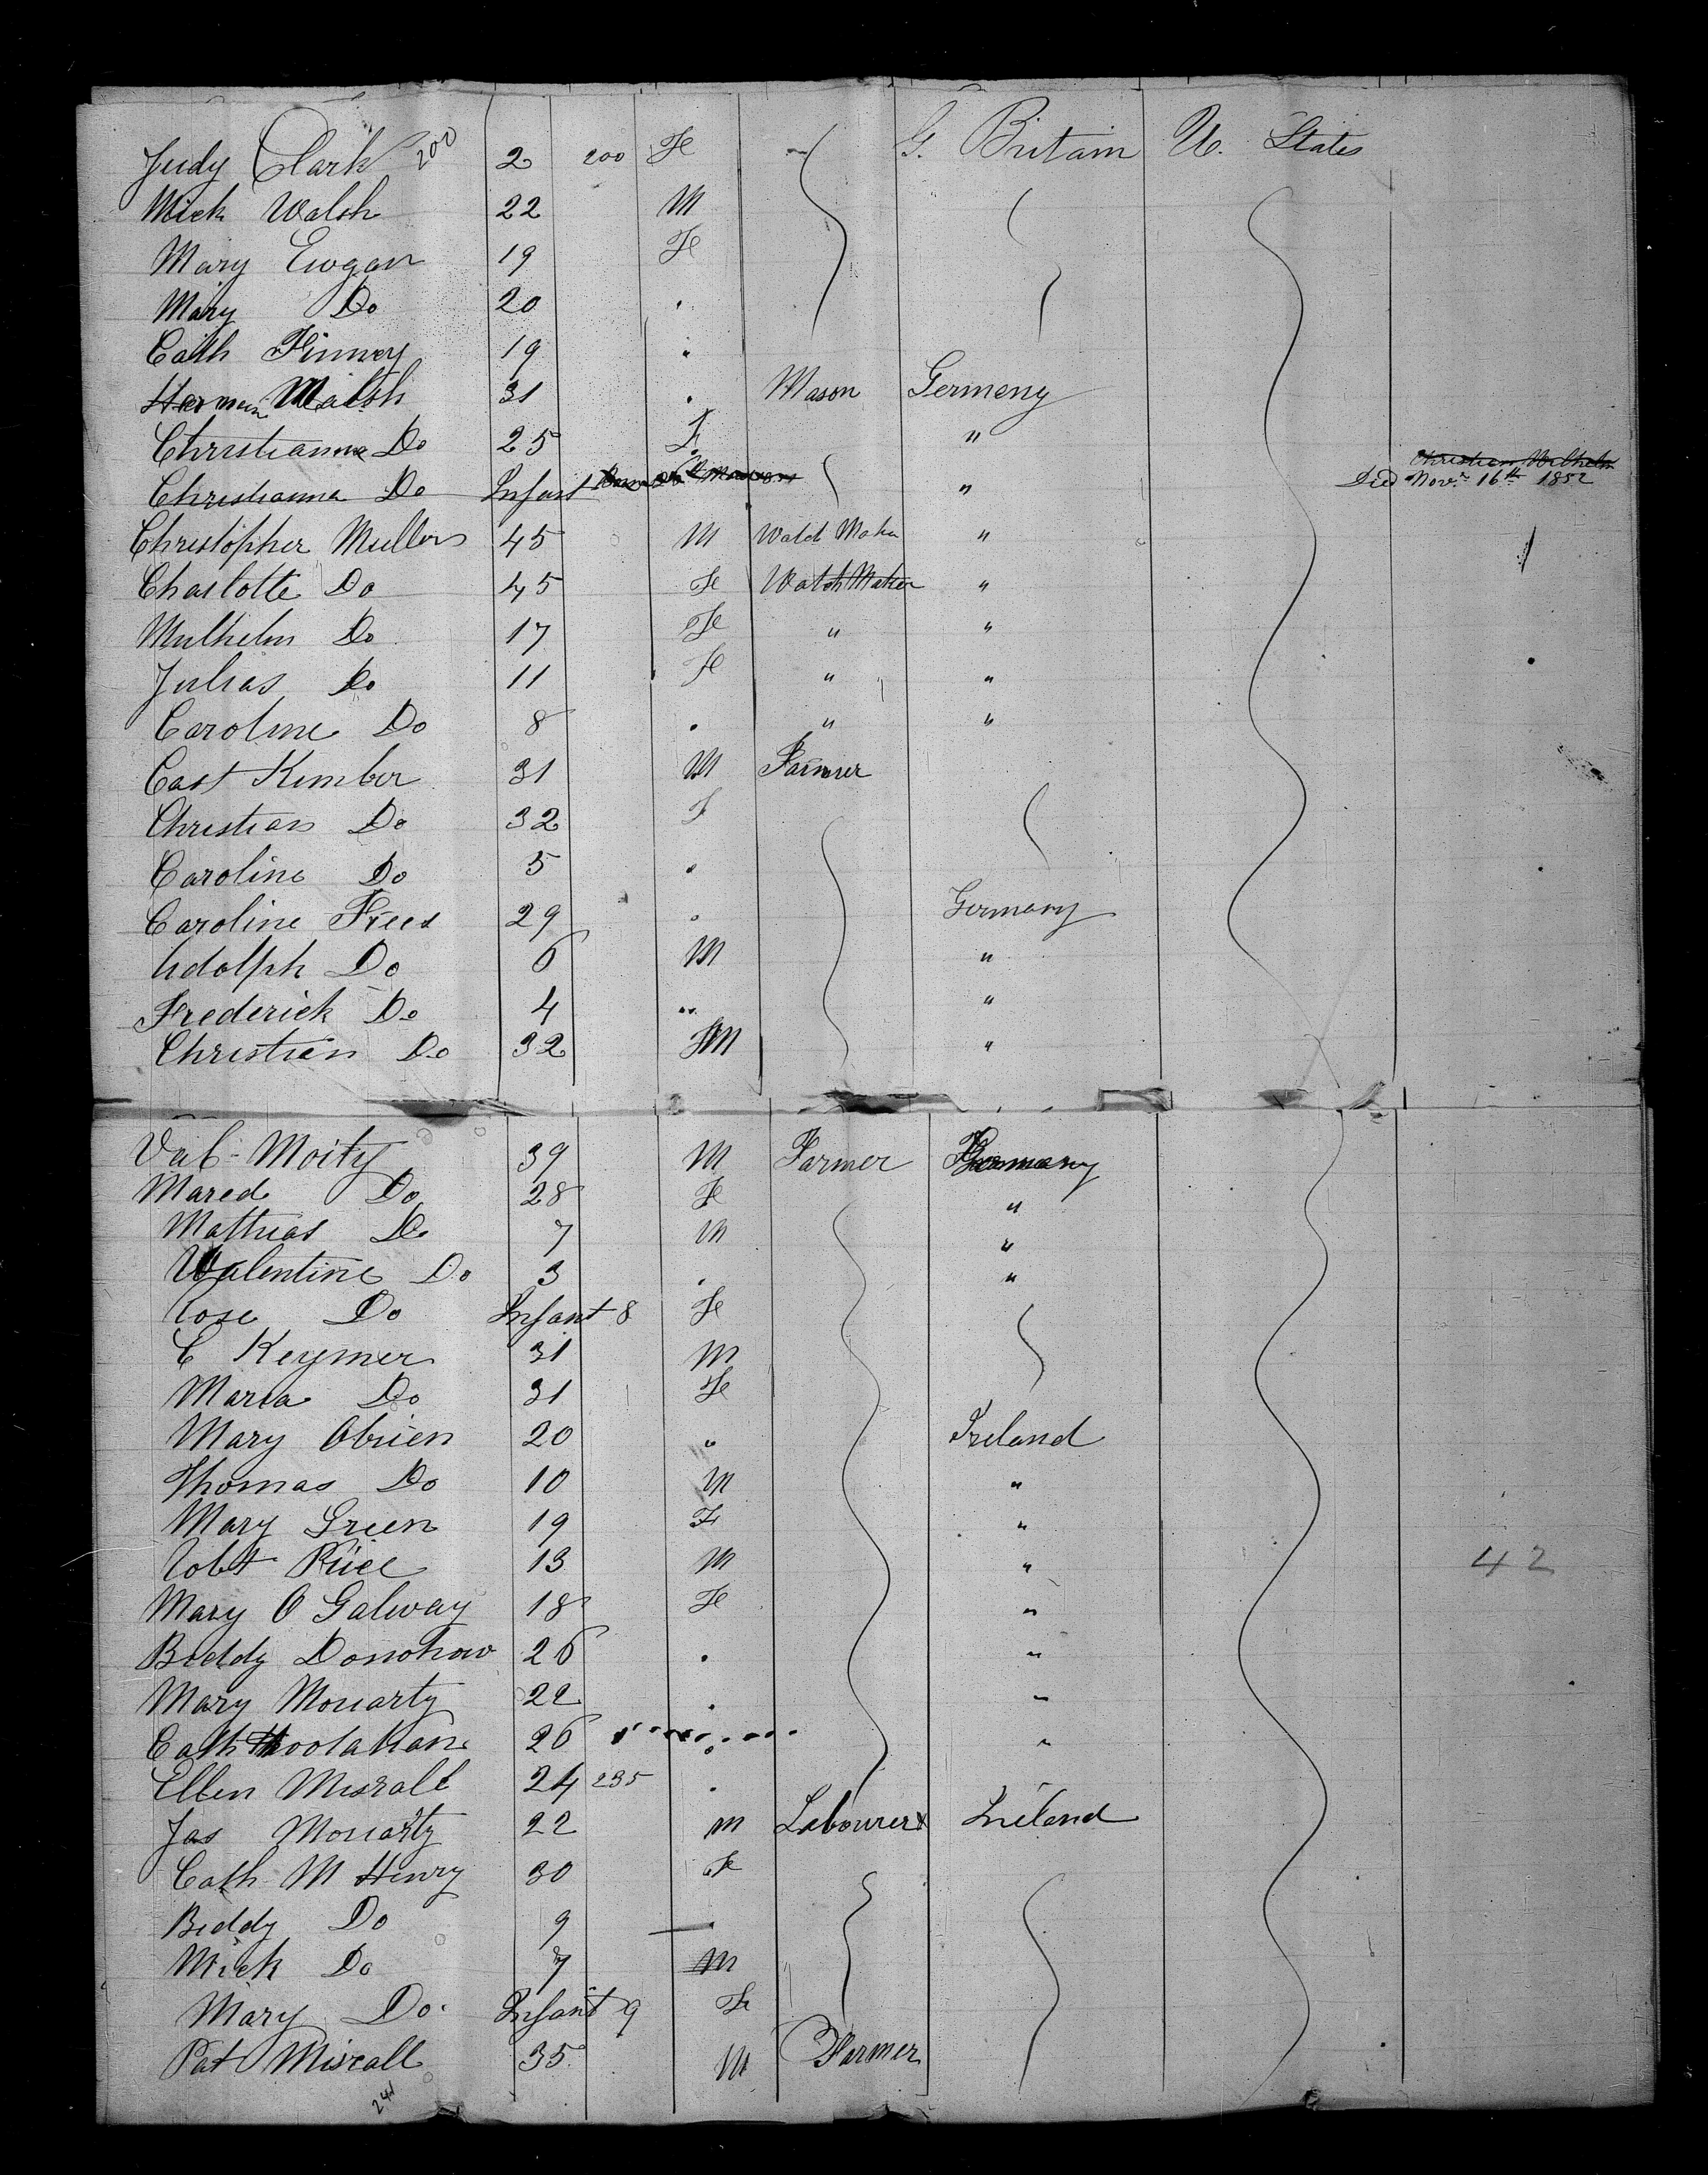 Judy Clark 200 2 200 Fe G. Britain U. States
Mick Walsh 22 M
Mary Ewgan 19 Fe
Mary Do 20 "
Cath Finney 19 "
Herman Walsh 31 " Mason Germeny
Christianna Do 25 F "
Christianna Do Infant " Christian Wilhelm
Died Novr. 16th 1852
Christopher Mullers 45 M Watch Maker "
Charlotte Do 45 Fe Watch Maker "
Mulhelm Do 17 Fe " "
Julias Do 11 Fe " "
Caroline Do 8 " " "
Cast Kimber 31 M Farmer
Christian Do 32 F
Caroline Do 5 "
Caroline Frees 29 " Germany
Adolph Do 6 M "
Frederick Do 4 " "
Christian Do 32 M "
Val Moity 39 M Farmer Germany
Mared Do 28 Fe "
Mathias Do 7 M "
Valentine Do 3 " "
Rose Do Infant 8 Fe
C Keymer 31 M
Maria Do 31 Fe
Mary Obrien 20 " Ireland
Thomas Do 10 M "
Mary Green 19 F "
Robt Rice 13 M " 42
Mary O Galway 18 Fe "
Biddy Donohow 26 " "
Mary Moriarty 22 " "
Cath Hoolahan 26 " "
Ellen Misrall 24 235 "
Jas Moriarty 22 M Labourer Ireland
Cath M Henry 30 Fe
Biddy Do 9 "
Mick Do 7 M
Mary Do Infant 9 Fe
Pat Misrall 35 M Farmer
241